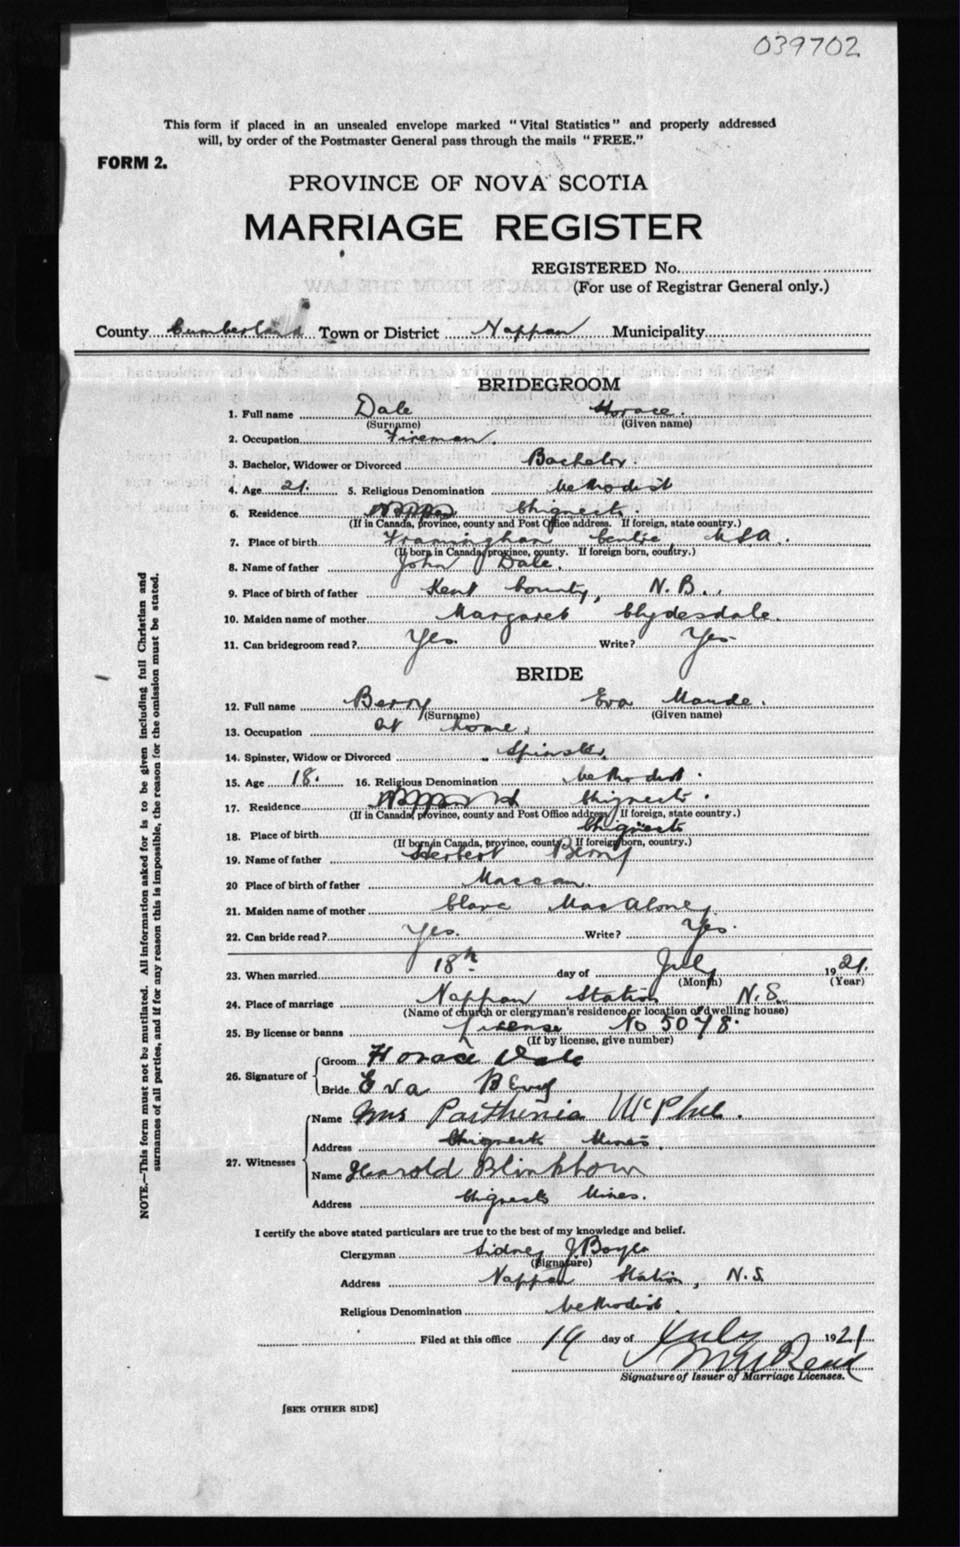 039702
This form if placed in an unsealed envelope marked "Vital Statistics" and properly addressed
will, by order of the Postmaster General pass through the mails "FREE."
FORM 2.
PROVINCE OF NOVA SCOTIA
MARRIAGE REGISTER
REGISTERED No.
(For use of Registrar General only.)
County Cumberland Town or District Nappan Municipality
BRIDEGROOM
1. Full name Dale Horace.
(Surname) (Given name)
2. Occupation Fireman.
3. Bachelor, Widower or Divorced Bachelor.
4. Age 21. 5. Religious Denomination Methodist
6. Residence Chignecto.
(If in Canada, province, county and Post Office address. If foreign, state country.)
7. Place of birth Framingham Centre, USA.
(If born in Canada, province, county. If foreign born, country.)
8. Name of father John Dale.
9. Place of birth of father Kent County, N.B.
10. Maiden name of mother Margaret Clydesdale.
11. Can bridegroom read? Yes. Write? Yes.
BRIDE
12. Full name Berry Eva Maude.
(Surname) (Given name)
13. Occupation at home.
14. Spinster, Widow or Divorced Spinster.
15. Age 18. 16. Religious Denomination Methodist.
17. Residence Chignecto.
(If in Canada, province, county and Post Office address. If foreign, state country.)
18. Place of birth Chignecto
(If born in Canada, province, county. If foreign born, country.)
19. Name of father Herbert Berry
20 Place of birth of father Maccan.
21. Maiden name of mother Clara MacAloney.
22. Can bride read? Yes. Write? Yes.
23. When married 18th day of July 1921.
(Month) (Year)
24. Place of marriage Nappan Station N.S.
(Name of church or clergyman's residence or location of dwelling house)
25. By license or banns License No 5078.
(If by license, give number)
26. Signature of
Groom Horace Dale
Bride Eva Berry
27. Witnesses
Name Mrs Parthenia McPhee.
Address Chignecto Mines.
Name Harold Blinkhorn
Address Chignecto Mines.
I certify the above stated particulars are true to the best of my knowledge and belief.
Clergyman Sidney J Boyce
(Signature)
Address Nappan Station, N.S
Religious Denomination Methodist.
Filed at this office 19 day of July 1921
Signature of Issuer of Marriage Licenses.
[SEE OTHER SIDE]
NOTE.—This form must not be mutilated. All information asked for is to be given including full Christian and
surnames of all parties, and if for any reason this is impossible, the reason for the omission must be stated.